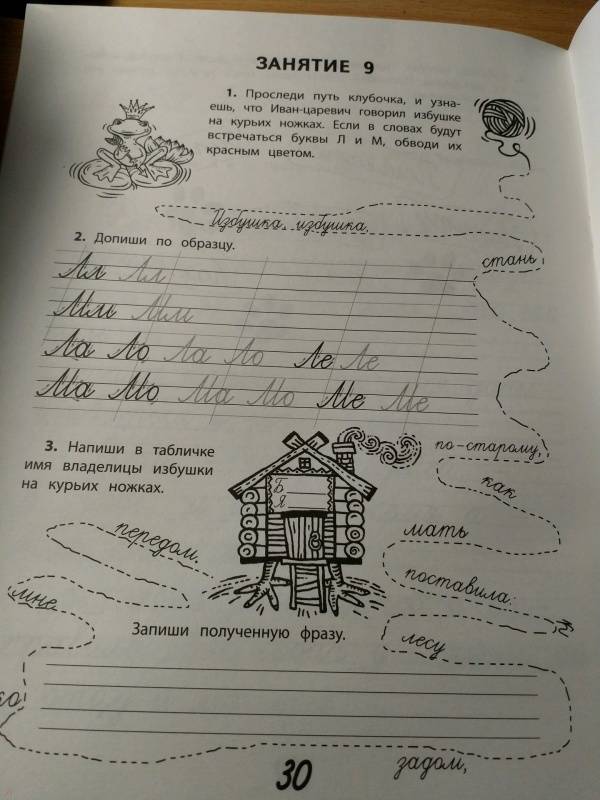 ЗАНЯТИЕ 9
1. Проследи путь клубочка, и узна-
ешь, что Иван-царевич говорил избушке
на курьих ножках. Если в словах будут
встречаться буквы Л и М, обводи их
красным цветом.
Избушка, избушка,
2. Допиши по образцу.
стань
Лл Лл
Мм Мм
Ла Ло Ла Ло Ле Ле
Ма Мо Ма Мо Ме Ме
3. Напиши в табличке
имя владелицы избушки
на курьих ножках.
Б
Я
по-старому,
как
мать
поставила:
к
лесу
задом,
ко
мне
передом.
Запиши полученную фразу.
30